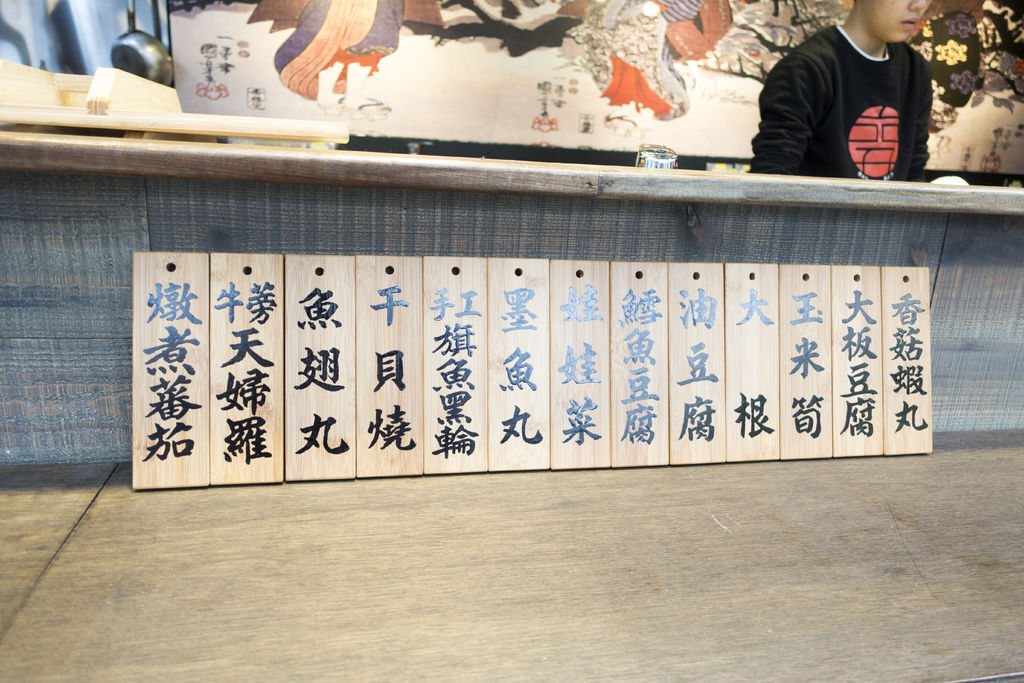 燉煮蕃茄
牛蒡天婦羅
魚翅丸
干貝燒
手工旗魚黑輪
墨魚丸
娃娃菜
鱈魚豆腐
油豆腐
大根
玉米筍
大板豆腐
香菇蝦丸